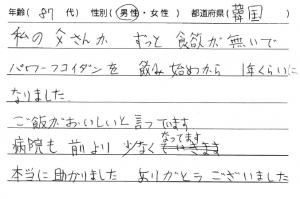 年齢(87代) 性別(男性・女性) 都道府県(韓国)
私の父さんが ずっと食欲が無いで
パワーフコイダンを 飲み始めから 1年くらいに
なりました.
ご飯がおいしいと言っています
病院も前より少なくなってます
本当に助かりました ありがとうございました